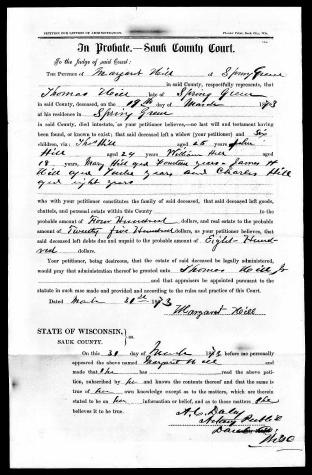 PETITION FOR LETTERS OF ADMINISTRATION.
In Probate.—Sauk County Court.
To the Judge of said Court:
The Petition of Margaret Hill of Spring Green
in said County, respectfully represents, that
Thomas Hill late of Spring Green
in said County, deceased, on the 19th day of March 1873
at his residence in Spring Green
in said County, died intestate, as your petitioner believes, no last will and testament having
been found, or known to exist; that said deceased left a widow (your petitioner) and Six
children, viz: Thos Hill aged 25 years John
Hill aged 24 years William Hill aged
18 years, Mary Hill aged fourteen years - James H
Hill aged twelve years and Charles Hill
aged eight years
who with your petitioner constitutes the family of said deceased, that said deceased left goods,
chattels, and personal estate within this County
to the
probable amount of Five Hundred and real estate to the probable
amount of Twenty five Hundred dollars, as your petitioner believes, that
said deceased left debts due and unpaid to the probable amount of Eight Hun-
dred dollars.
Your petitioner, being desirous, that the estate of said deceased be legally administered,
would pray that administration thereof be granted unto Thomas Hill Jr
and that appraisers be appointed pursuant to the
statute in such case made and provided and according to the rules and practice of this Court.
Dated March 31st 1873
Margaret Hill
STATE OF WISCONSIN,
SAUK COUNTY.
On this 31 day of March 1873 before me personally
appeared the above named Margaret Hill and
made that She has read the above peti-
tion, subscribed by her and knows the contents thereof and that the same is
true of her own knowledge except as to the matters, which are therein
stated to be on her information or belief, and as to those matters She
believes it to be true.
A. C. Daley
Notary Public
Sauk
Wis